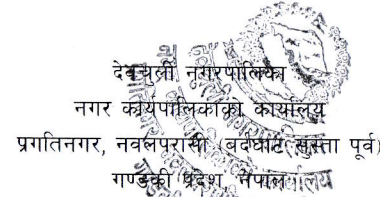 देवचुली नगरपालिका
नगर कार्यपालिकाको कार्यालय
प्रगतिनगर, नवलपरासी (बर्दघाट सुस्ता पूर्व)
गण्डकी प्रदेश, नेपाल